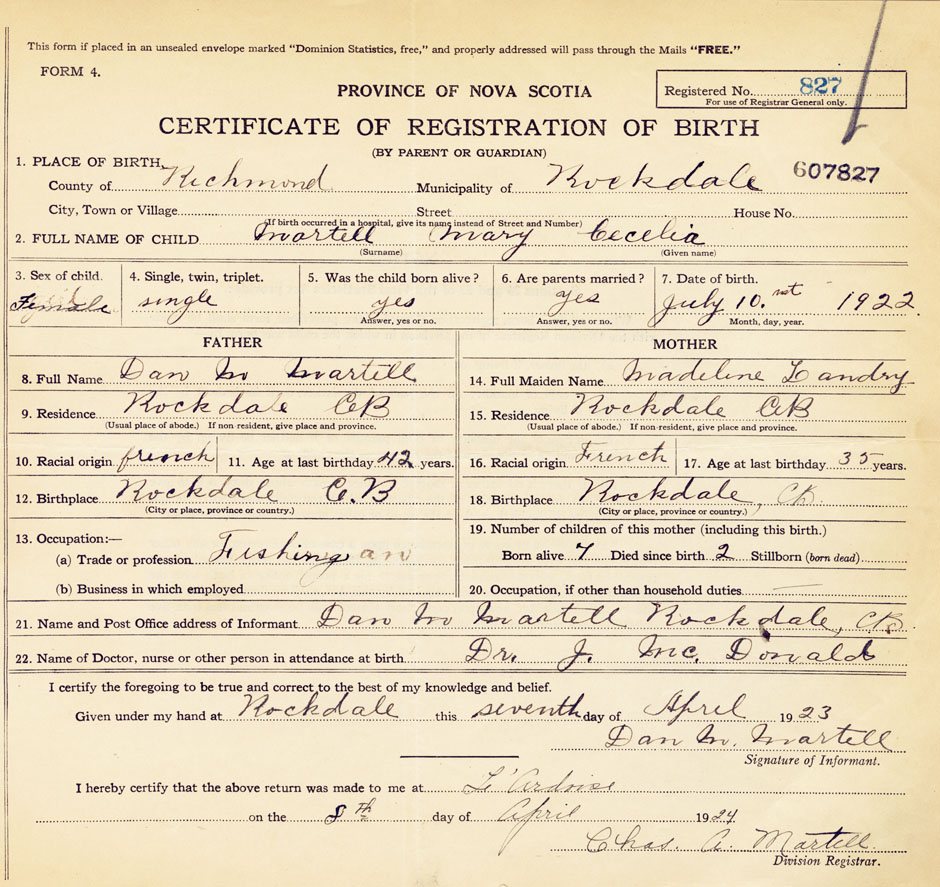 This form if placed in an unsealed envelope marked "Dominion Statistics, free," and properly addressed will pass through the Mails "FREE."
FORM 4.
PROVINCE OF NOVA SCOTIA
Registered No. 827
For use of Registrar General only.
CERTIFICATE OF REGISTRATION OF BIRTH
(BY PARENT OR GUARDIAN)
607827
1. PLACE OF BIRTH,
County of Richmond Municipality of Rockdale
City, Town or Village Street House No.
(If birth occurred in a hospital, give its name instead of Street and Number)
2. FULL NAME OF CHILD Martell Mary Cecelia
(Surname) (Given name)
3. Sex of child. 4. Single, twin, triplet. 5. Was the child born alive? 6. Are parents married? 7. Date of birth.
Female single yes yes July 10. 1922
Answer, yes or no. Answer, yes or no. Month, day, year.
FATHER
8. Full Name Dan M Martell
9. Residence Rockdale CB
(Usual place of abode.) If non-resident, give place and province.
10. Racial origin french 11. Age at last birthday 42 years.
12. Birthplace Rockdale C.B
(City or place, province or country.)
13. Occupation:—
(a) Trade or profession Fishing
(b) Business in which employed
MOTHER
14. Full Maiden Name Madeline Landry
15. Residence Rockdale CB
(Usual place of abode.) If non-resident, give place and province.
16. Racial origin French 17. Age at last birthday 35 years.
18. Birthplace Rockdale, CB.
(City or place, province or country.)
19. Number of children of this mother (including this birth.)
Born alive 7 Died since birth 2 Stillborn (born dead)
20. Occupation, if other than household duties
21. Name and Post Office address of Informant Dan M Martell Rockdale, CB
22. Name of Doctor, nurse or other person in attendance at birth Dr. J. Mc. Donald
I certify the foregoing to be true and correct to the best of my knowledge and belief.
Given under my hand at Rockdale this seventh day of April 1923
Dan M. Martell
Signature of Informant.
I hereby certify that the above return was made to me at L'Ardoise
on the 8th day of April 1924
Chas. A. Martell
Division Registrar.